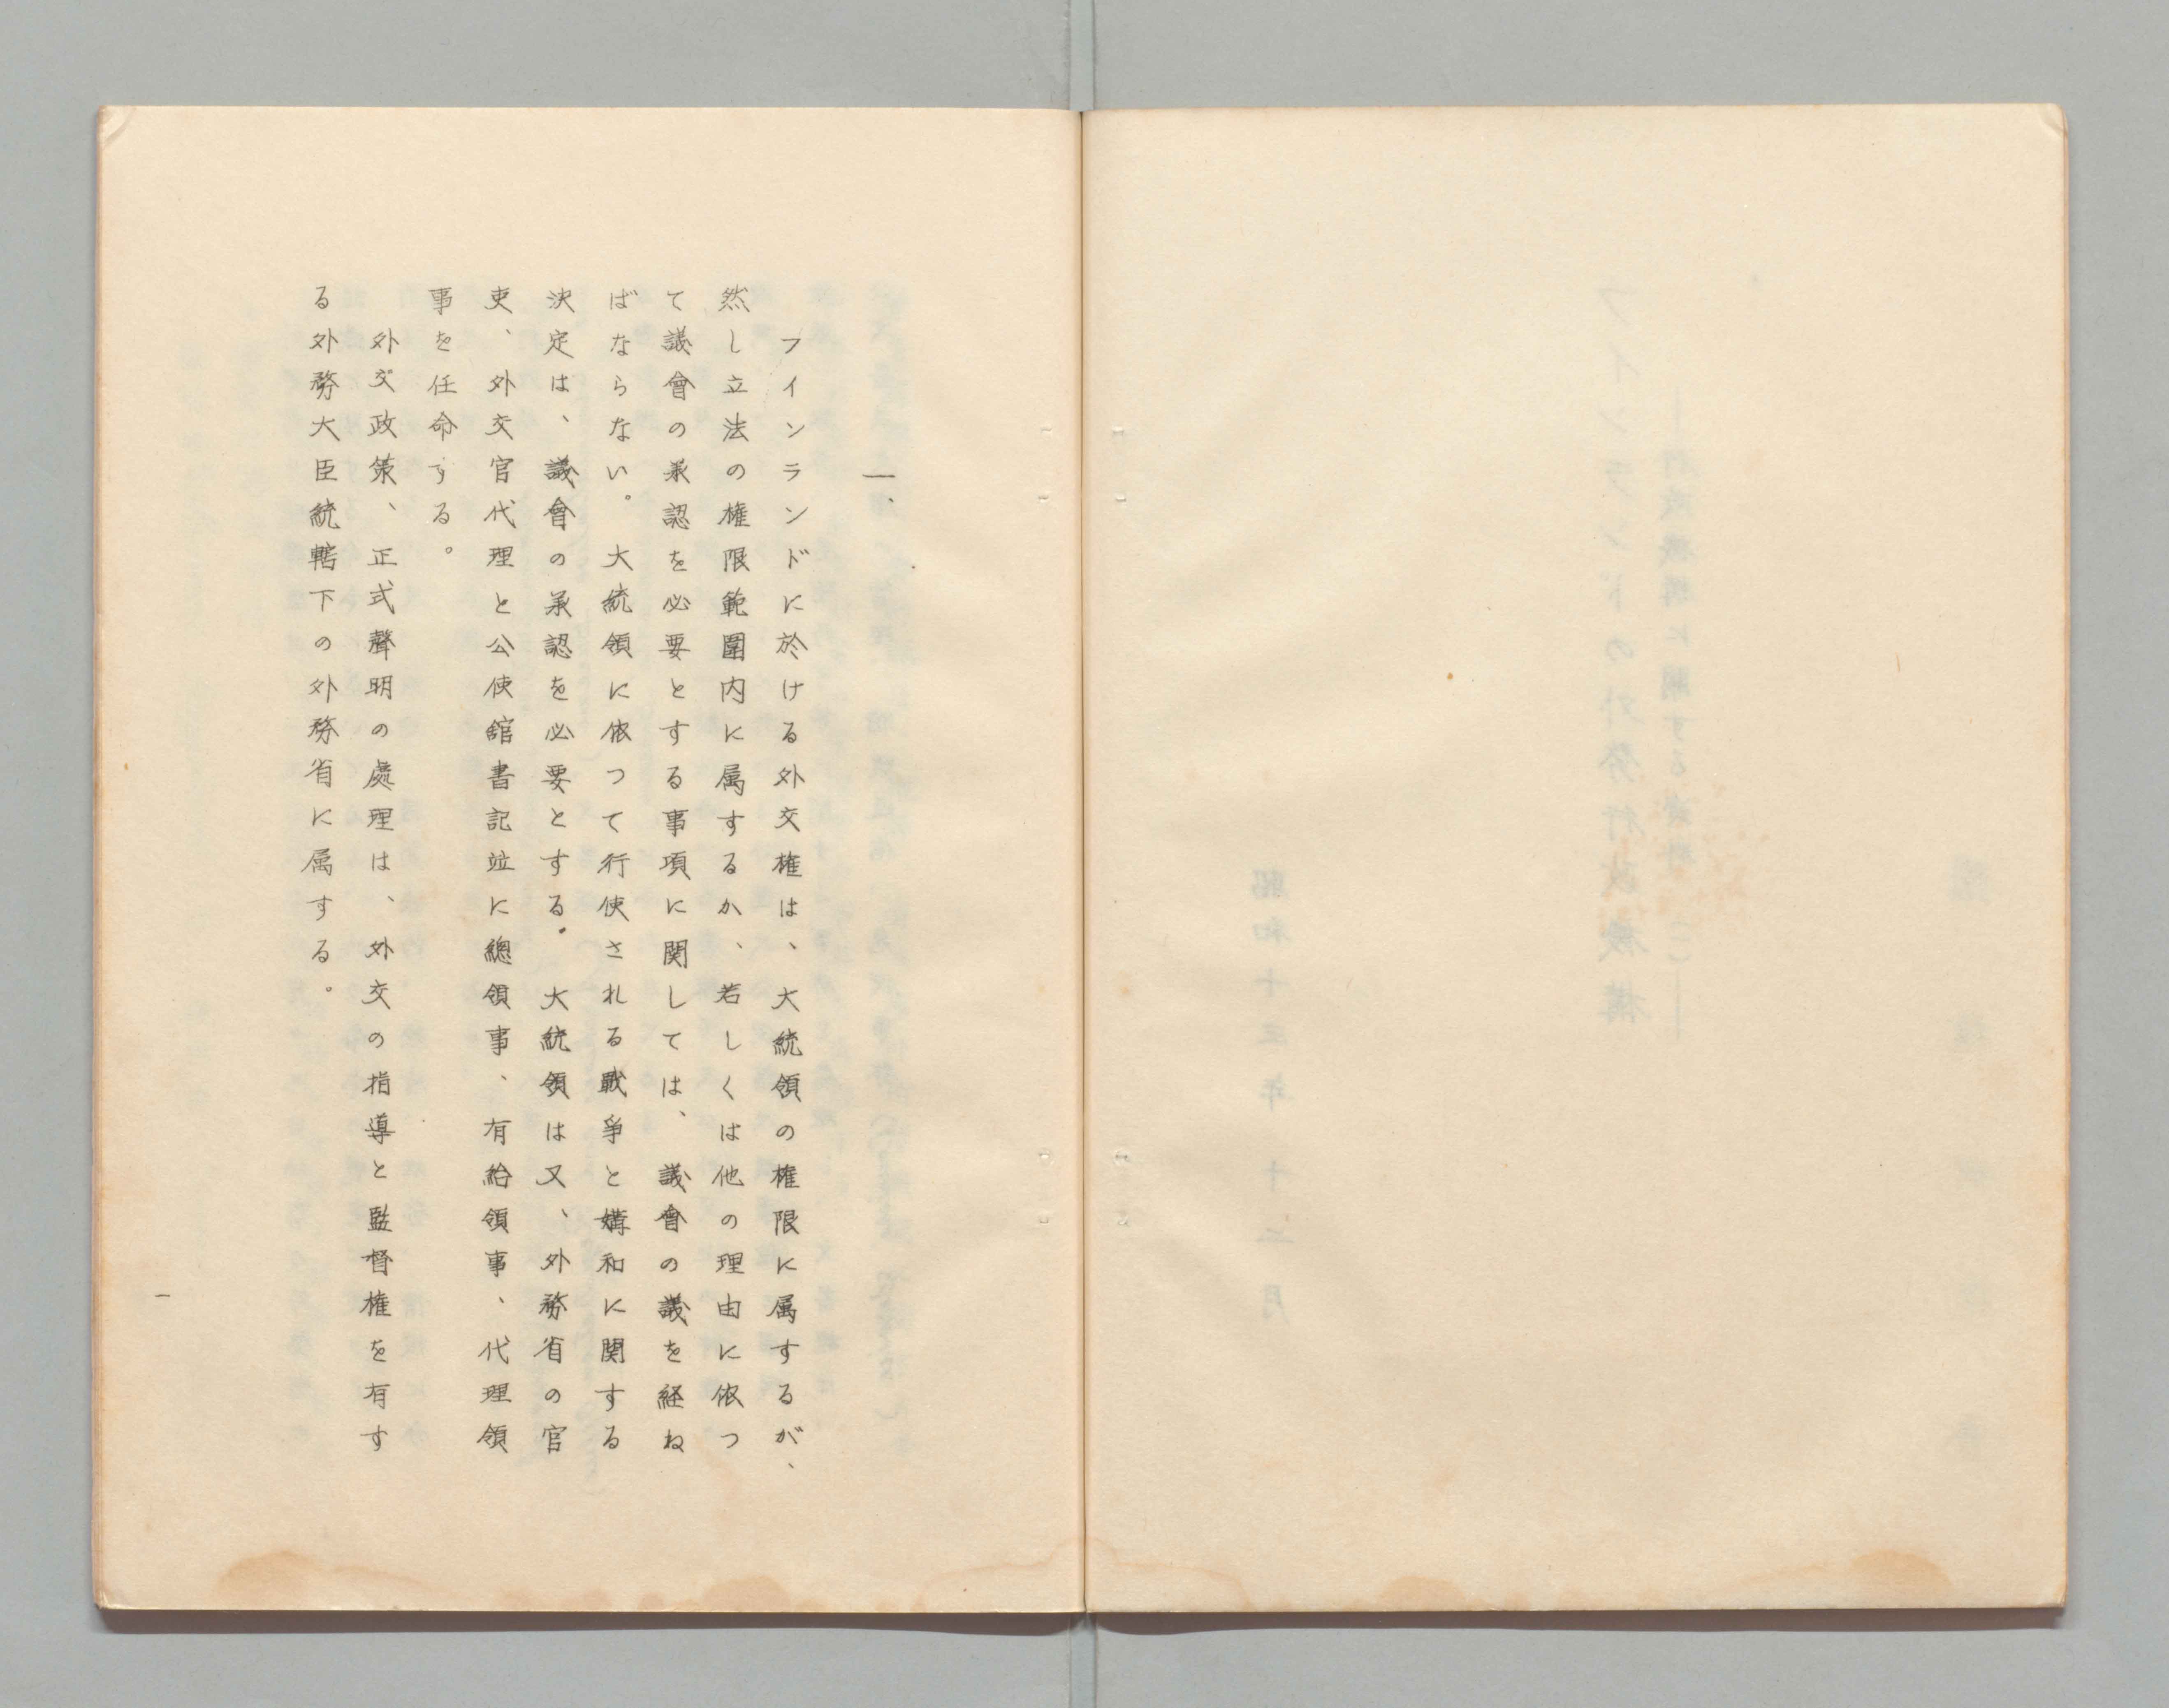 一、
フインランドに於ける外交権は、大統領の権限に属するが、
然し立法の権限範圍内に属するか、若しくは他の理由に依つ
て議會の承認を必要とする事項に関しては、議會の議を経ね
ばならない。大統領に依つて行使される戰爭と媾和に関する
決定は、議會の承認を必要とする。大統領は又、外務省の官
吏、外交官代理と公使舘書記竝に總領事、有給領事、代理領
事を任命する。
外交政策、正式聲明の處理は、外交の指導と監督権を有す
る外務大臣統轄下の外務省に属する。
一